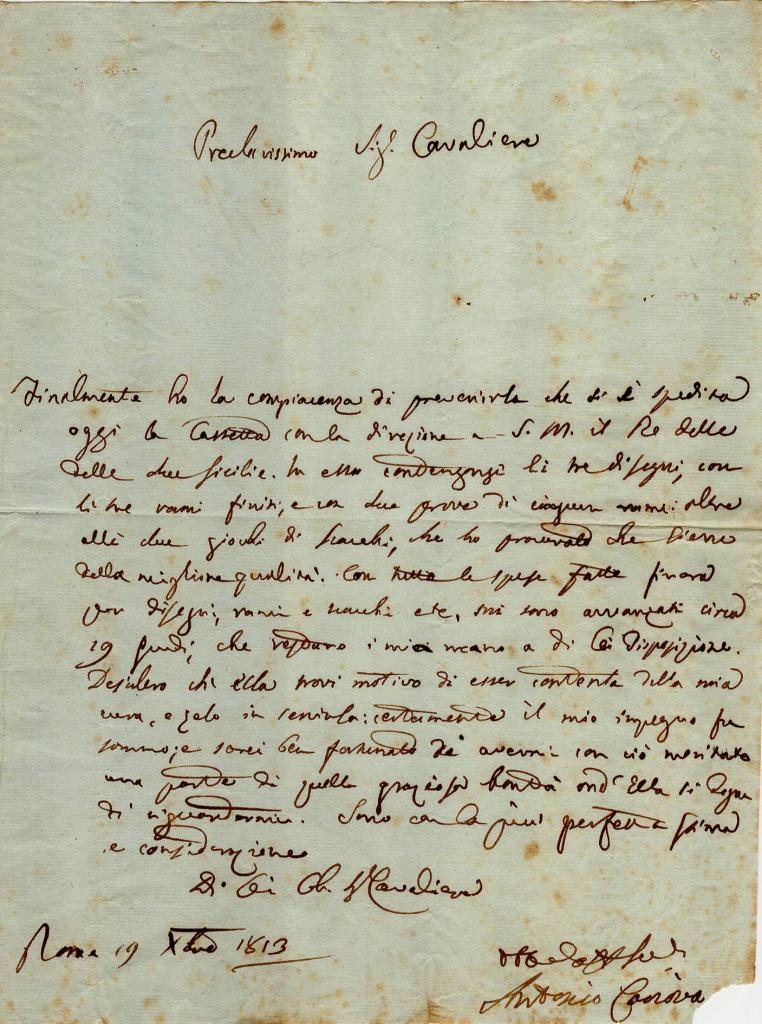 Preclarissimo Sigr. Cavaliere
Finalmente ho la compiacenza di prevenirla che si è spedita
oggi la Cassetta con la direzione a S. M. il Re delle
delle due Sicilie. In essa contengonsi li tre disegni, con
li tre rami finiti, e con due prove di ciascun rame: oltre
alli due giochi di scacchi, che ho procurato che sieno
della migliore qualità. Con tutte le spese fatte finora
per disegni, rami e scacchi etc, mi sono avvanzati circa
19 scudi, che restano i mia mano a di Lei disposizione.
Desidero ch'ella trovi motivo di esser contenta della mia
cura, e zelo in servirla: certamente il mio impegno fu
sommo; e sarei ben fortunato di avermi con ciò meritato
una parte di quella graziosa bontà ond'Ella si degna
di riguardarmi. Sono con la più perfetta stima
e considerazione
Di Lei Sr Cavaliere
Roma 19 Xbre 1813
Antonio Canova